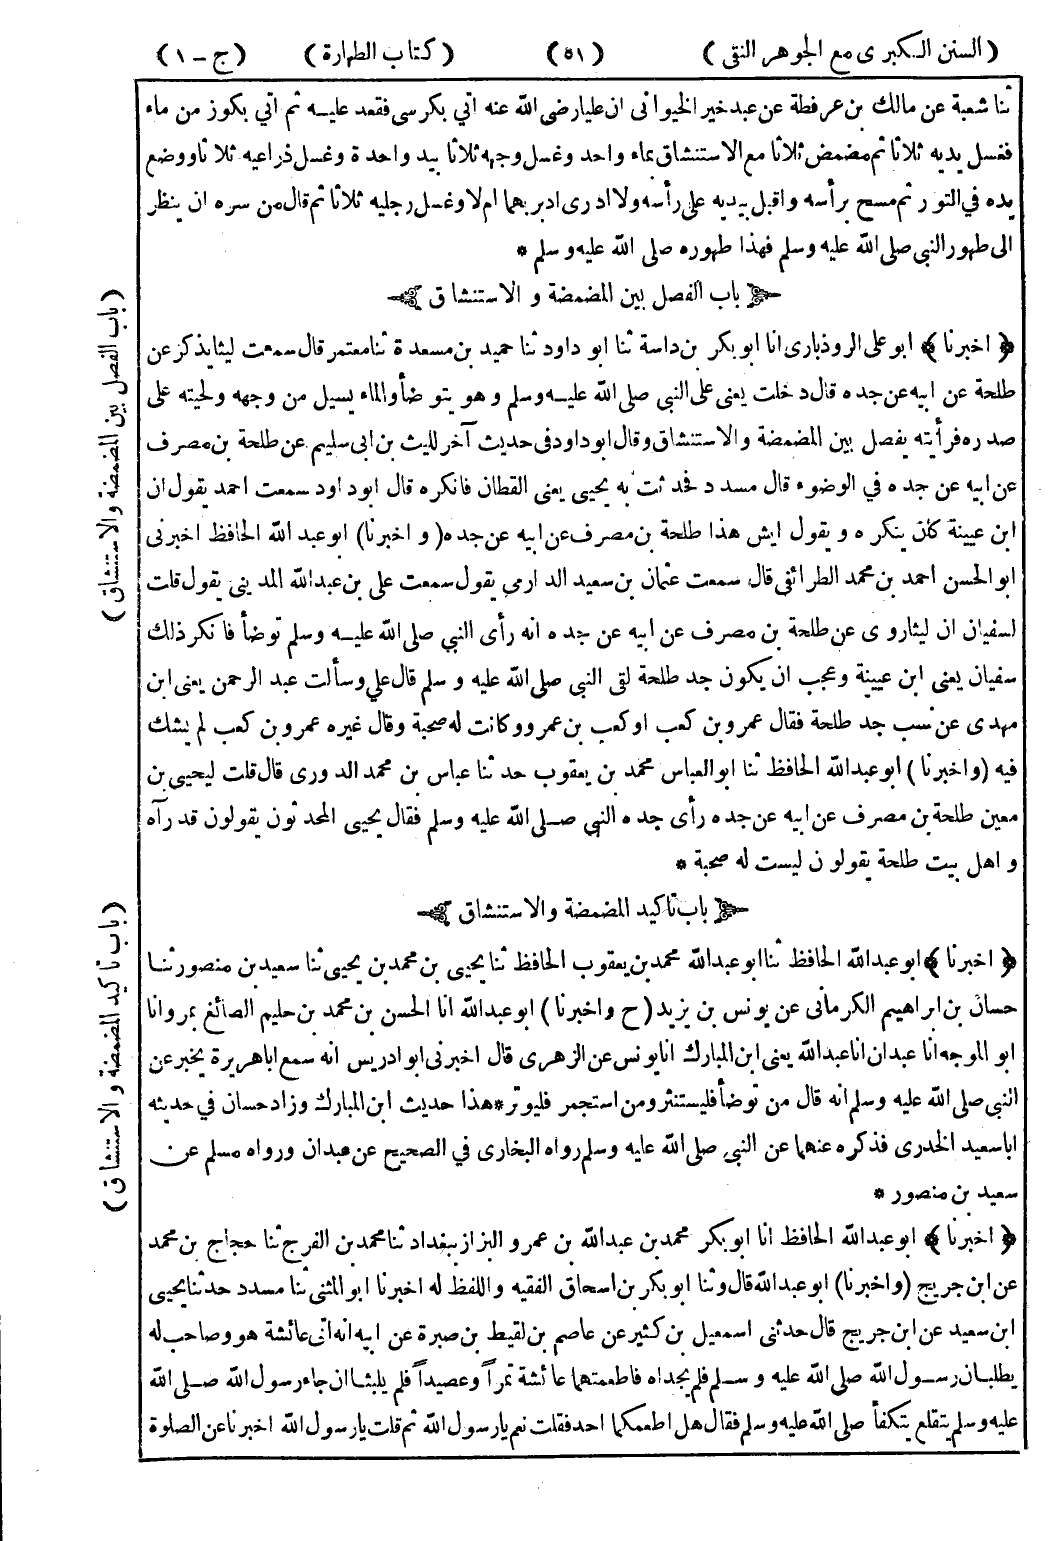 (السنن الكبرى مع الجوهر النقى) (٥١) (كتاب الطهارة) (ج - ١)
ثنا شعبة عن مالك بن عرفطة عن عبد خير الخيوانى ان عليا رضى الله عنه اتي بكرسى فقعد عليه ثم اتي بكوز من ماء
فغسل يديه ثلاثا ثم مضمض ثلاثا مع الاستنشاق بماء واحد وغسل وجهه ثلاثا بيد واحدة وغسل ذراعيه ثلاثا ووضع
يده في التور ثم مسح برأسه واقبل بيديه على رأسه ولا ادرى ادبر بهما ام لا وغسل رجليه ثلاثا ثم قال من سره ان ينظر
الى طهور النبي صلى الله عليه وسلم فهذا طهوره صلى الله عليه وسلم *
باب الفصل بين المضمضة و الاستنشاق
﴿ اخبرنا ﴾ ابو على الروذبارى انا ابو بكر بن داسة ثنا ابو داود ثنا حميد بن مسعدة ثنا معتمر قال سمعت ليثا يذكر عن
طلحة عن ابيه عن جده قال دخلت يعنى على النبي صلى الله عليه وسلم وهو يتوضأ والماء يسيل من وجهه ولحيته على
صدره فرأيته يفصل بين المضمضة والاستنشاق وقال ابو داود فى حديث آخر لليث بن ابى سليم عن طلحة بن مصرف
عن ابيه عن جده في الوضوء قال مسدد فحدثت به يحيى يعنى القطان فانكره قال ابوداود سمعت احمد يقول ان
ابن عيينة كان ينكره و يقول ايش هذا طلحة بن مصرف عن ابيه عن جده (و اخبرنا) ابو عبد الله الحافظ اخبرنى
ابو الحسن احمد بن محمد الطرائفى قال سمعت عثمان بن سعيد الدارمي يقول سمعت على بن عبدالله المديني يقول قلت
لسفيان ان ليثا روى عن طلحة بن مصرف عن ابيه عن جده انه رأى النبي صلى الله عليه وسلم توضأ فانكر ذلك
سفيان يعنى ابن عيينة وعجب ان يكون جد طلحة لقى النبي صلى الله عليه و سلم قال علي وسألت عبد الرحمن يعنى ابن
مهدى عن نسب جد طلحة فقال عمرو بن كعب او كعب بن عمرو وكانت له صحبة وقال غيره عمرو بن كعب لم يشك
فيه (واخبرنا) ابو عبدالله الحافظ ثنا ابو العباس محمد بن يعقوب حدثنا عباس بن محمد الدورى قال قلت ليحيى بن
معين طلحة بن مصرف عن ابيه عن جده رأى جده النبي صلى الله عليه وسلم فقال يحيى المحدثون يقولون قد رآه
و اهل بيت طلحة يقولون ليست له صحبة *
باب تاكيد المضمضة والاستنشاق
﴿ اخبرنا ﴾ ابو عبدالله الحافظ ثنا ابو عبدالله محمد بن يعقوب الحافظ ثنا يحيى بن محمد بن يحيى ثنا سعيد بن منصور ثنا
حسان بن ابراهيم الكرمانى عن يونس بن يزيد (ح واخبرنا) ابو عبدالله انا الحسن بن محمد بن حليم الصائغ بمرو انا
ابو الموجه انا عبدان انا عبدالله يعنى ابن المبارك انا يونس عن الزهرى قال اخبرنى ابو ادريس انه سمع اباهريرة يخبر عن
النبي صلى الله عليه وسلم انه قال من توضأ فليستنثر ومن استجمر فليوتر * هذا حديث ابن المبارك وزاد حسان في حديثه
ابا سعيد الخدرى فذكره عنهما عن النبي صلى الله عليه وسلم رواه البخارى في الصحيح عن عبدان ورواه مسلم عن
سعيد بن منصور *
﴿ اخبرنا ﴾ ابو عبدالله الحافظ انا ابو بكر محمد بن عبدالله بن عمرو البزاز ببغداد ثنا محمد بن الفرج ثنا حجاج بن محمد
عن ابن جريج (واخبرنا) ابو عبدالله قال وثنا ابو بكر بن اسحاق الفقيه واللفظ له اخبرنا ابو المثنى ثنا مسدد حدثنا يحيى
ابن سعيد عن ابن جريج قال حدثنى اسمعيل بن كثير عن عاصم بن لقيط بن صبرة عن ابيه انه اتى عائشة هو وصاحب له
يطلبان رسول الله صلى الله عليه و سلم فلم يجداه فاطعمتهما عائشة تمراً وعصيداً فلم يلبثا ان جاء رسول الله صلى الله
عليه وسلم يتقلع يتكفأ صلى الله عليه وسلم فقال هل اطعمكما احد فقلت نعم يا رسول الله ثم قلت يا رسول الله اخبرنا عن الصلوة
(باب الفصل بين المضمضة والاستنشاق)
(باب تاكيد المضمضة و الاستنشاق)